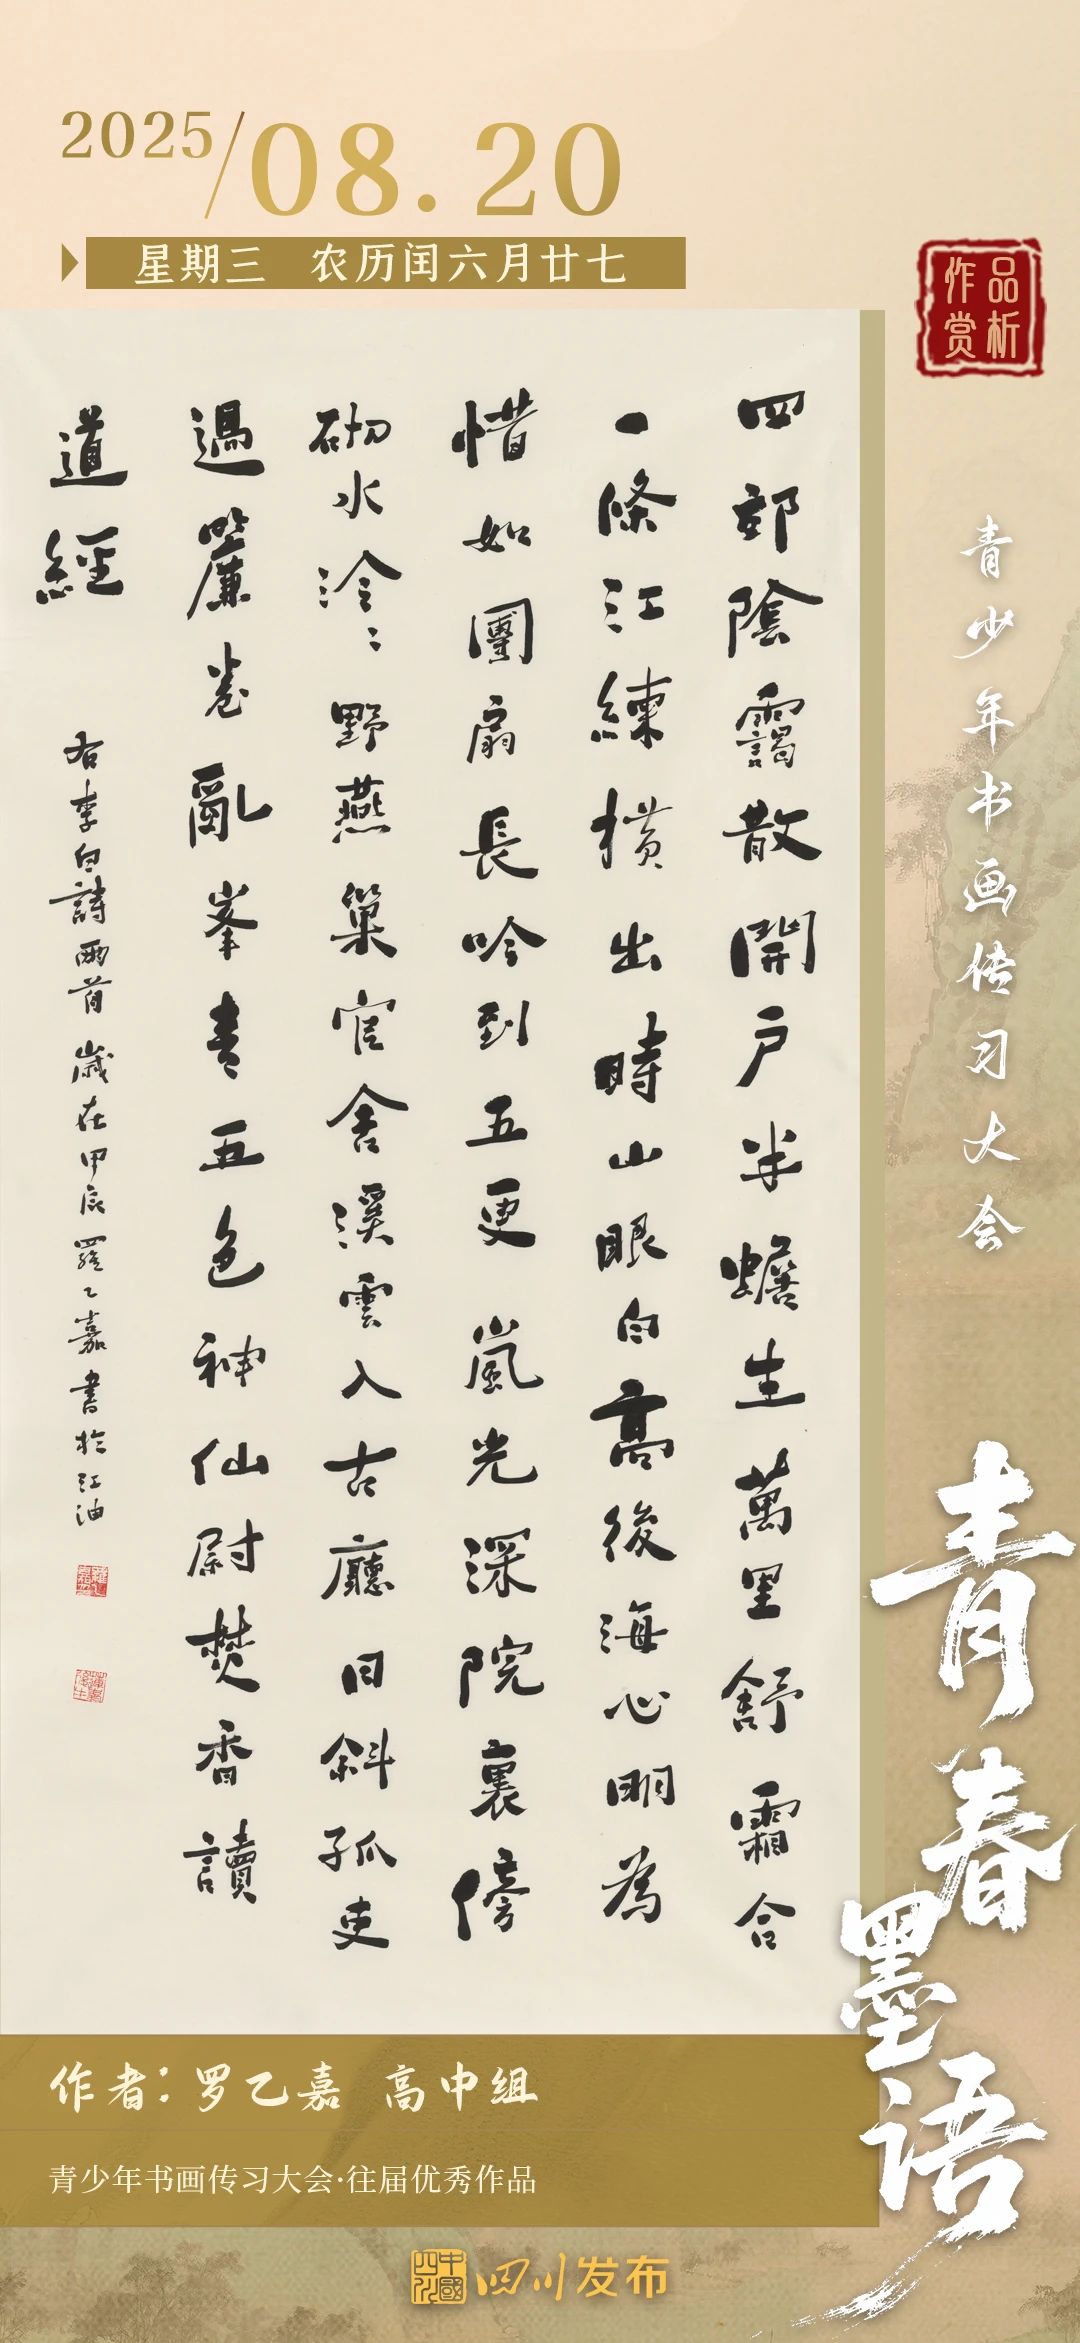 2025/08.20
星期三 农历闰六月廿七
作品
赏析
青少年书画传习大会
青春墨语
四郊陰靄散開戶半蟾生萬里舒霜合
一條江練橫出時山眼白高後海心明為
惜如團扇長吟到五更 嵐光深院裏傍
砌水泠〻野燕巢官舍溪雲入古廳日斜孤吏
過簾卷亂峯青五色神仙尉焚香讀
道經
右李白詩兩首 歲在甲辰 羅乙嘉書於江油
作者：罗乙嘉 高中组
青少年书画传习大会·往届优秀作品
四川发布